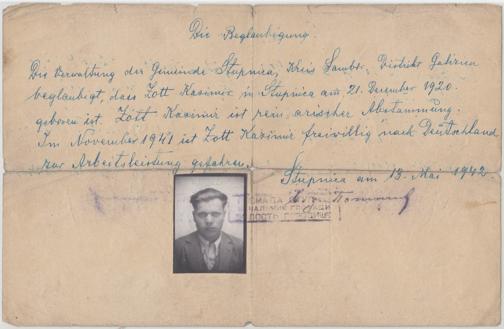 Die Beglaubigung.
Die Verwaltung der Gemeinde Stupnica, Kreis Sambor, Distrikt Galizien
beglaubigt, dass Zott Kasimir in Stupnica am 21. Dezember 1920.
geboren ist. Zott Kasimir ist rein arischer Abstammung.
Im November 1941 ist Zott Kazimir freiwillig nach Deutschland
zur Arbeitsleistung gefahren.
Stupnica am 13. Mai 1942